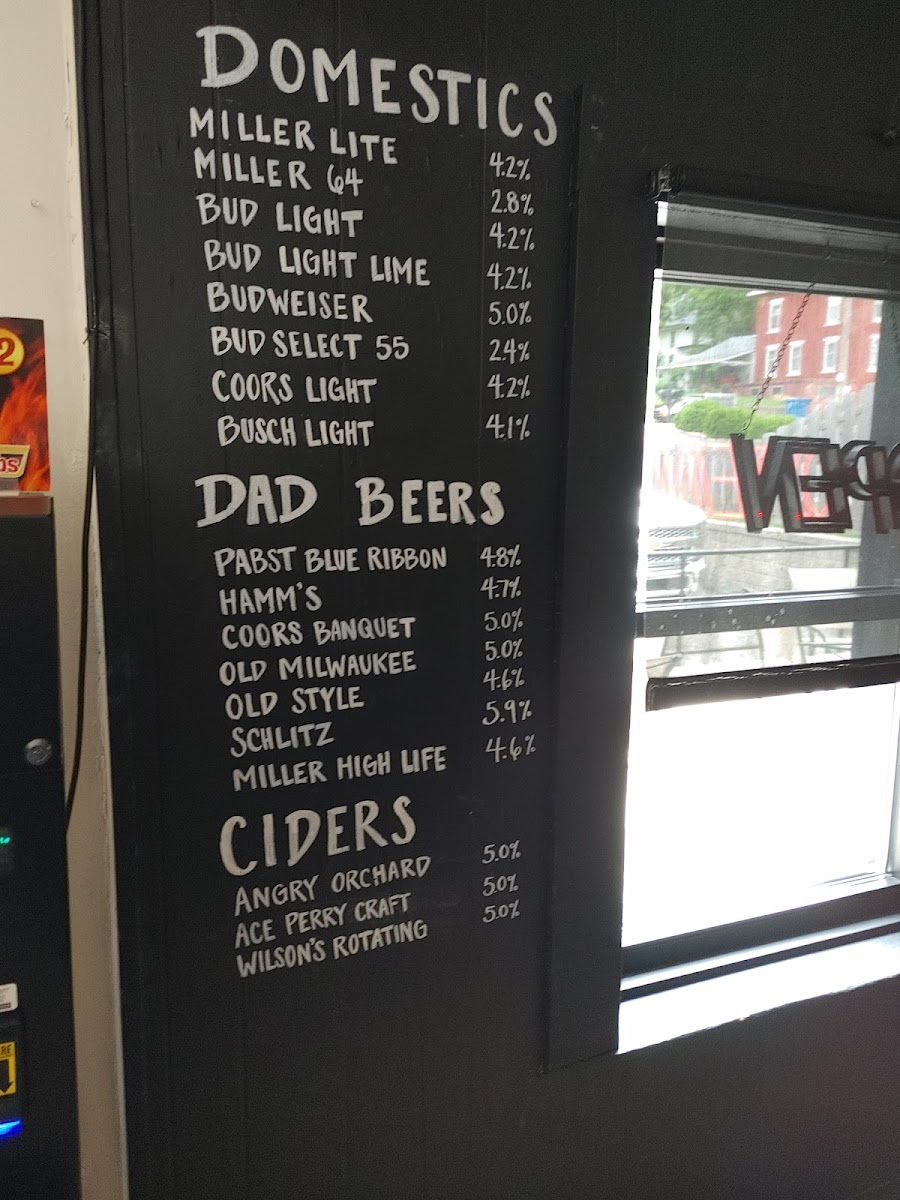 DOMESTICS
MILLER LITE 4.2%
MILLER 64 2.8%
BUD LIGHT 4.2%
BUD LIGHT LIME 4.2%
BUDWEISER 5.0%
BUD SELECT 55 2.4%
COORS LIGHT 4.2%
BUSCH LIGHT 4.1%
DAD BEERS
PABST BLUE RIBBON 4.8%
HAMM'S 4.7%
COORS BANQUET 5.0%
OLD MILWAUKEE 5.0%
OLD STYLE 4.6%
SCHLITZ 5.9%
MILLER HIGH LIFE 4.6%
CIDERS
ANGRY ORCHARD 5.0%
ACE PERRY CRAFT 5.0%
WILSON'S ROTATING 5.0%
OPEN
2